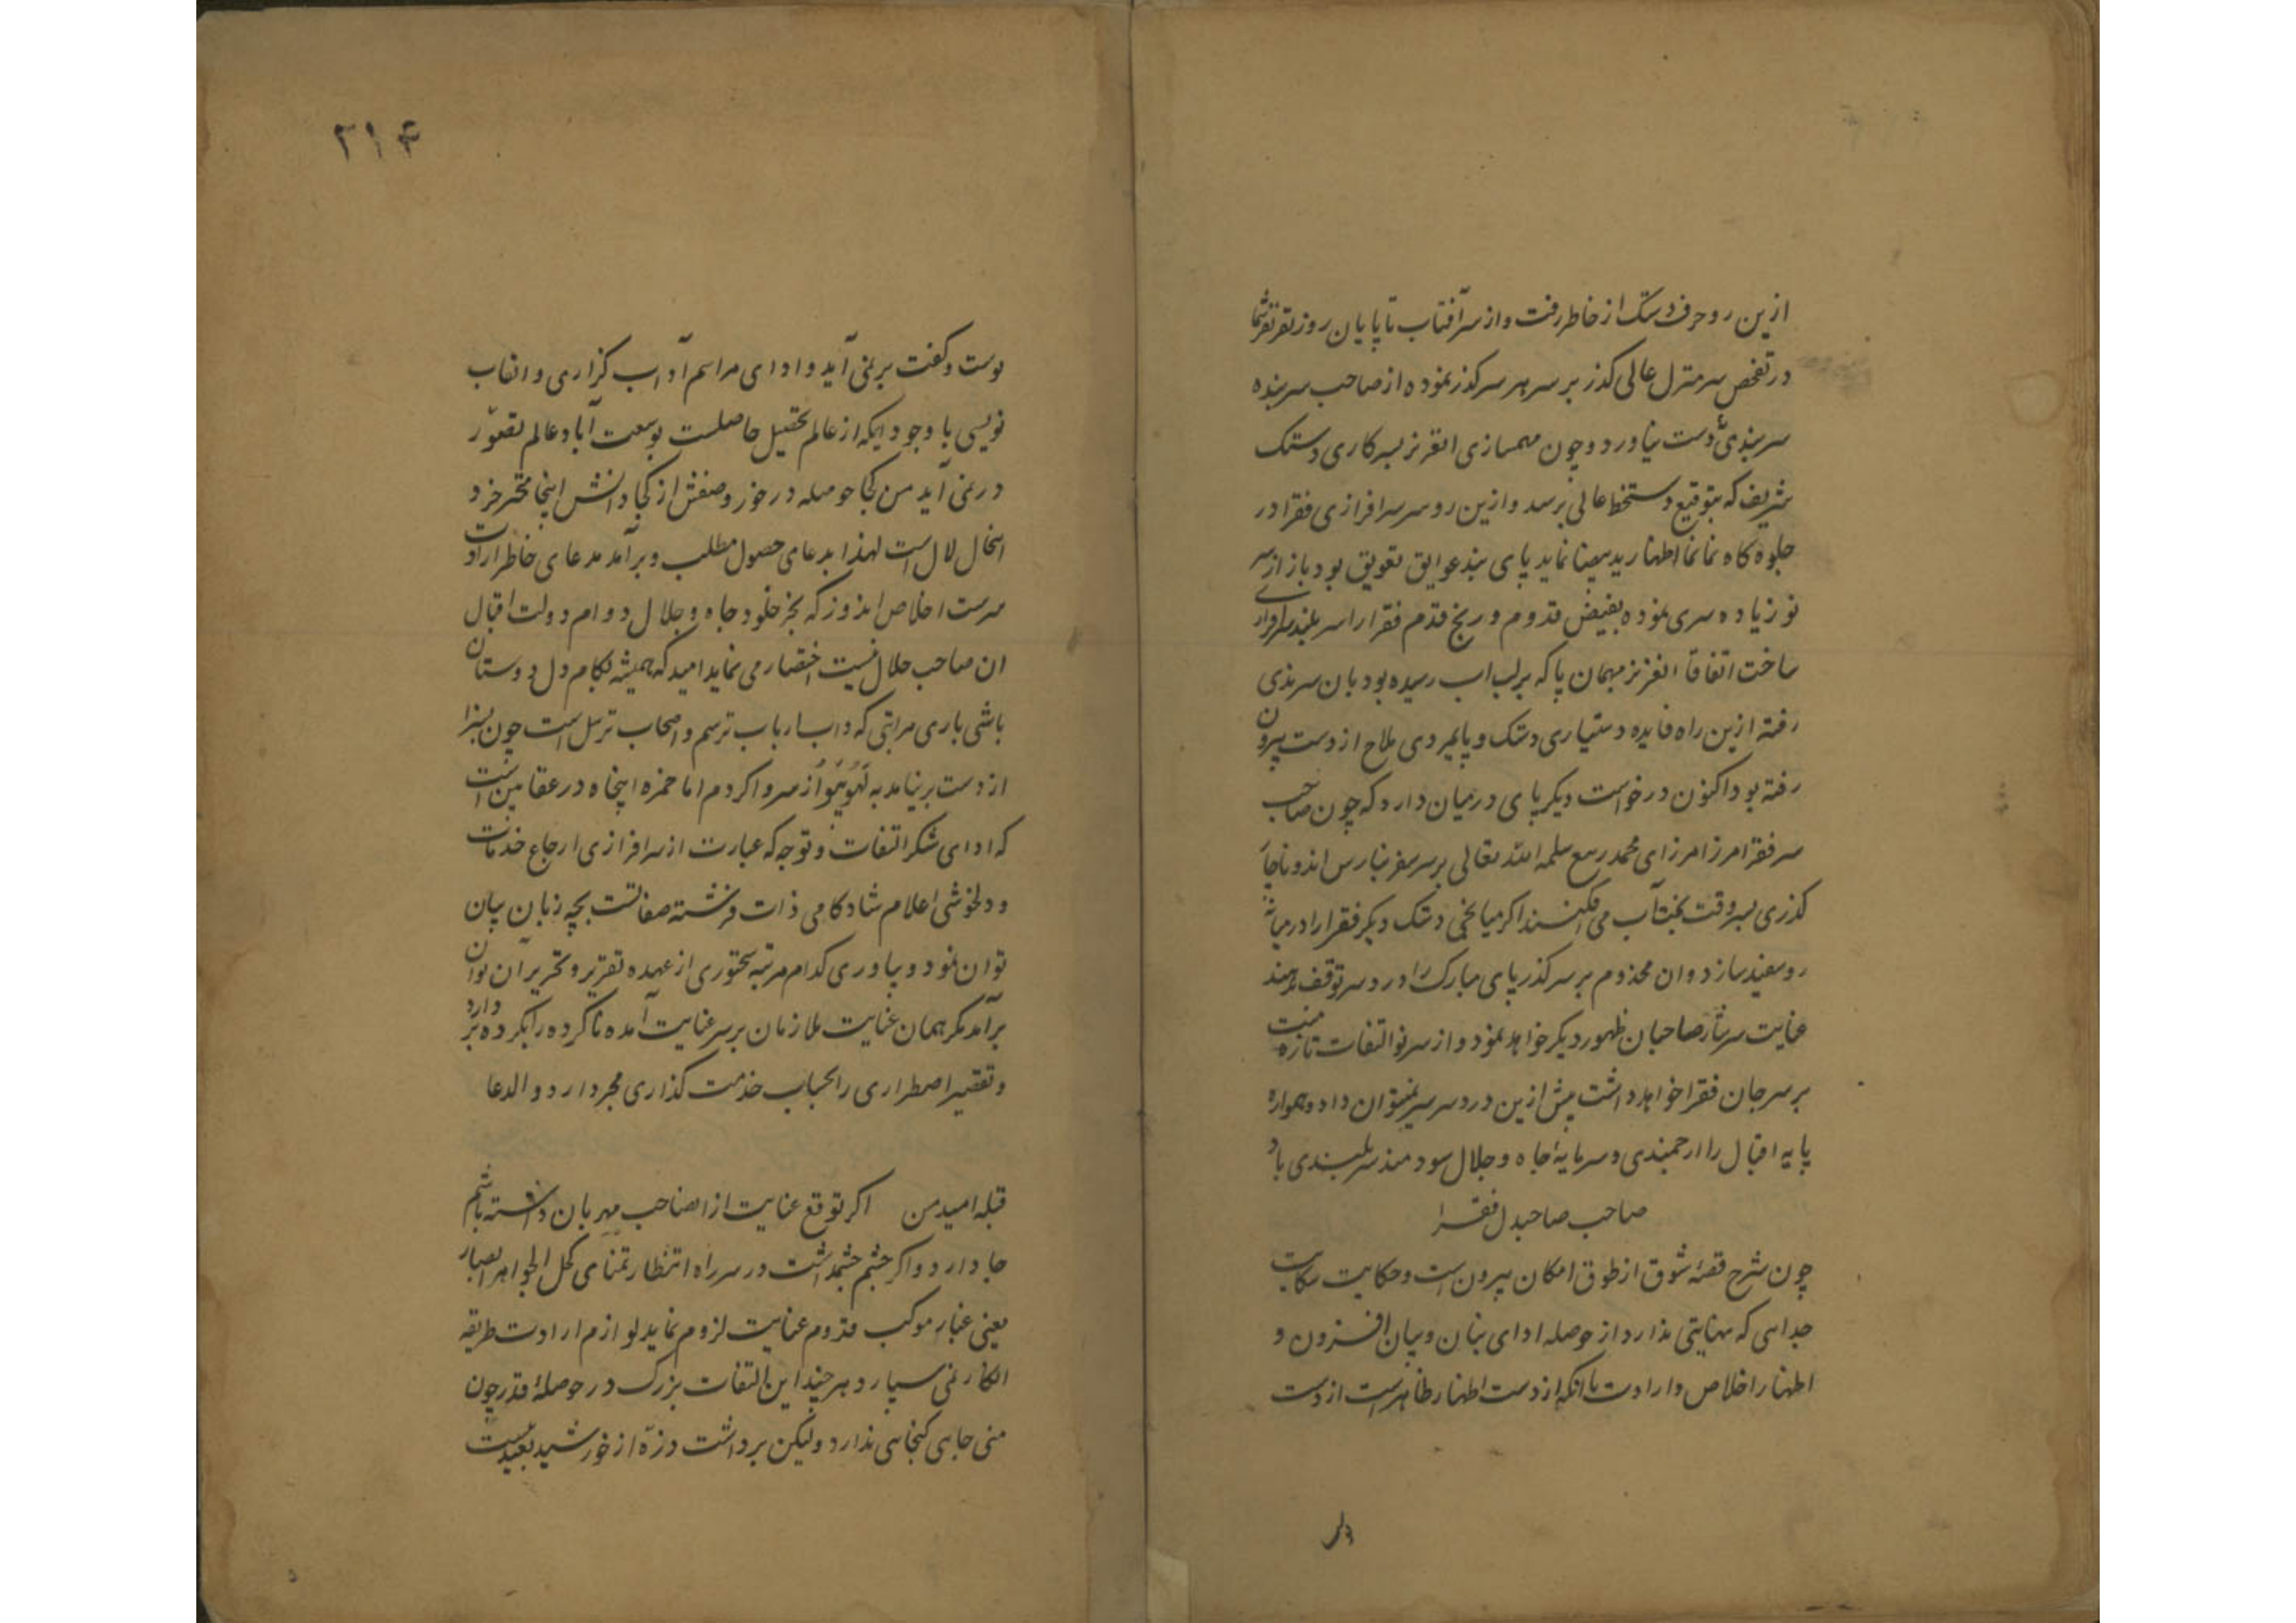 ازین رو حرف دستک از خاطر رفت و از سر آفتاب تا پایان روز
در تفحص سر منزل عالی گذر بر سر هر سر گذر نموده از صاحب سر بنده
سر بندی دست نیاورد و چون مهمسازی العزیز بسرکاری دستک
شریف که بتوقیع دستخط عالی برسد و ازین رو سر سرافرازی فقرا در
جلوه گاه نمانما اظهار ید بیضا نماید پای بند عوایق تعویق بود باز از سر
نو زیاده سری نموده بفیض قدوم و رنج قدم فقرا را سر بلند
ساخت اتفاقا العزیز مهمان پا که بر لب اب رسیده بود بان سر بندی
رفته ازین راه فایده دستیاری دستک و پایمردی ملاح از دست بیرون
رفته بود اکنون درخواست دیگر پای در میان دارد که چون صاحب
سر فقرا مرزا مرزای محمد ربیع سلمه الله تعالی بر سر سفر بنارس اند و ناچار
گذری بسر وقت آب می افکنند اگر میانجی دستک دیگر فقرا را در میانه
روسفید سازد و ان مخدوم بر سر گذر پای مبارک را درد سر توقف ندهند
عنایت سرشار صاحبان ظهور دیگر خواهد نمود و از سر نو التفات تازه منت
بر سر جان فقرا خواهد داشت پیش ازین درد سر سر نمیتوان داد و همواره
پایه اقبال را ارجمندی و سرمایهٔ جاه و جلال سودمند سربلندی باد
صاحب صاحبدل فقرا
چون شرح قصهٔ شوق از طوق امکان بیرون است و حکایت شکایت
جدایی که نهایتی ندارد از حوصله ادای بنان و بیان افزون و
اظهار اخلاص و ارادت با آنکه از دست اظهار ظاهر است از دست
۲۱۴
نویسی با وجود آنکه از عالم تحصیل حاصلست بوسعت آباد عالم تصور
در نمی آید من کجا حوصله در خور وصفش از کجا دانش اینجا خرد
است لهذا بدعای حصول مطلب و برآمد مدعای خاطر ارادت
سرست اخلاص اندوز که بجز خلود جاه و جلال دوام دولت اقبال
ان صاحب حلال نیست اختصار می نماید امید که همیشه بکام دل دوستان
باشی باری مراتبی که داب ارباب ترسم و اصحاب ترسل است چون بسزا
از دست بر نیامد به از سر وا کردم اما حمزه اینجاه در عقابین است
که ادای شکر التفات و توجه که عبارت از سرافرازی ارجاع خدمات
و دلخوشی اعلام شادکامی ذات فرشته صفاتست بچه زبان بیان
توان نمود و بیاوری کدام مرتبه سخنوری از عهده تقریر و تحریر آن توان
برآمد مگر همان عنایت ملازمان بر سر عنایت آمده ناکرده را بکرده بر دارد
و تقصیر اضطراری را بحساب خدمت گذاری مجر دارد و الدعا
قبله امید من اگر توقع عنایت از انصاحب مهربان داشته باشم
جا دارد و اگر چشم چشمداشت در سر راه انتظار تمنای کحل الجواهر
یعنی غبار موکب قدوم عنایت لزوم نماید لوازم ارادت طریقه
انکار نمی سپارد هر چند این التفات بزرگ در حوصلهٔ قدر چون
منی جای گنجایی ندارد ولیکن برداشت ذرّه از خورشید بعید نیست